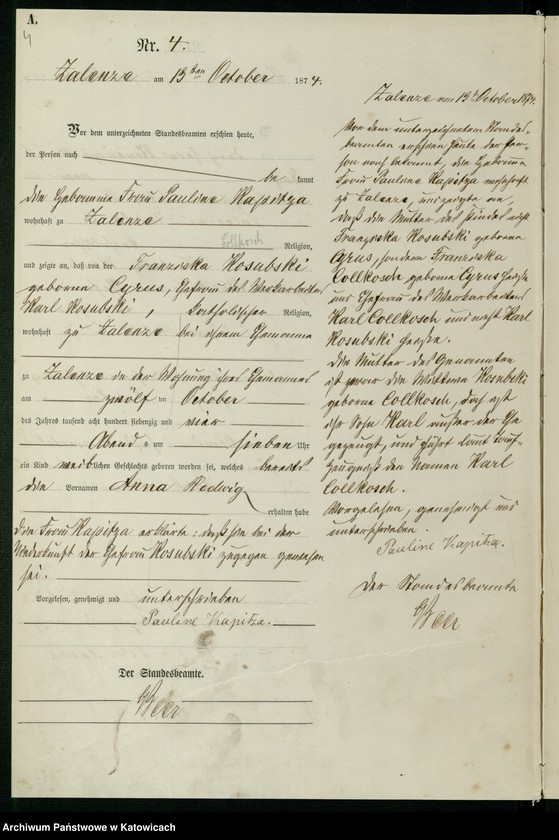 A.
4
Nr. 4.
Zalenze am 13ten October 1874.
Vor dem unterzeichneten Standesbeamten erschien heute,
der Person nach
be kannt
die Hebamme Frau Pauline Kapitza
wohnhaft zu Zalenze
Collkosch Religion,
und zeigte an, daß von der Franziska Kosubski
geborene Cyrus, Ehefrau des Werkarbeiters
Karl Kosubski, katholischer Religion,
wohnhaft zu Zalenze bei ihrem Ehemanne
zu Zalenze in der Wohnung ihres Ehemannes
am zwölf ten October
des Jahres tausend acht hundert siebenzig und vier
Abends um sieben Uhr
ein Kind weiblichen Geschlechts geboren worden sei, welches bereits
die Vornamen Anna Hedwig
erhalten habe
Die Frau Kapitza erklärte: daß sie bei der
Niederkunft der Ehefrau Kosubski zugegen gewesen
sei.
Vorgelesen, genehmigt und unterschrieben
Pauline Kapitza.
Der Standesbeamte.
Beer
Zalenze am 13t October 1874.
Vor dem unterzeichneten Standes-
beamten erschien heute der Per-
son nach bekannt, die Hebamme
Frau Pauline Kapitza wohnhaft
zu Zalenze, und zeigte an,
daß die Mutter des Kindes nicht
Franziska Kosubski geborene
Cyrus, sondern Franziska
Collkosch geborene Cyrus heiße
und Ehefrau des Werkarbeiters
Karl Collkosch und nicht Karl
Kosubski heiße.
Die Mutter des Genannten
ist zwar die Wittwe Kosubski
geborene Collkosch, doch ist
ihr Sohn Karl außer der Ehe
gezeugt, und führt laut Tauf-
zeugniß den Namen Karl
Collkosch.
Vorgelesen, genehmigt und
unterschrieben
Pauline Kapitza.
Der Standesbeamte
Beer
Archiwum Państwowe w Katowicach